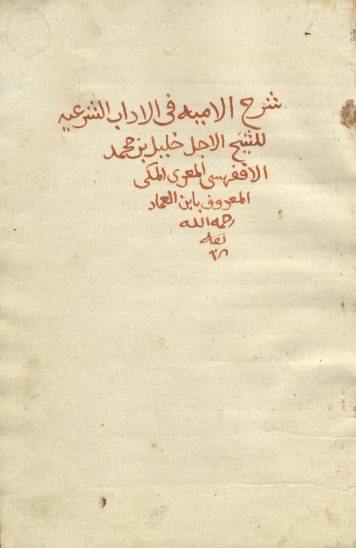 شرح الامية فى الاداب الشرعيه
للشيخ الاجل خليل بن محمد
الاقفهسى المعرى المكى
المعروف بابن العماد
رحمه الله